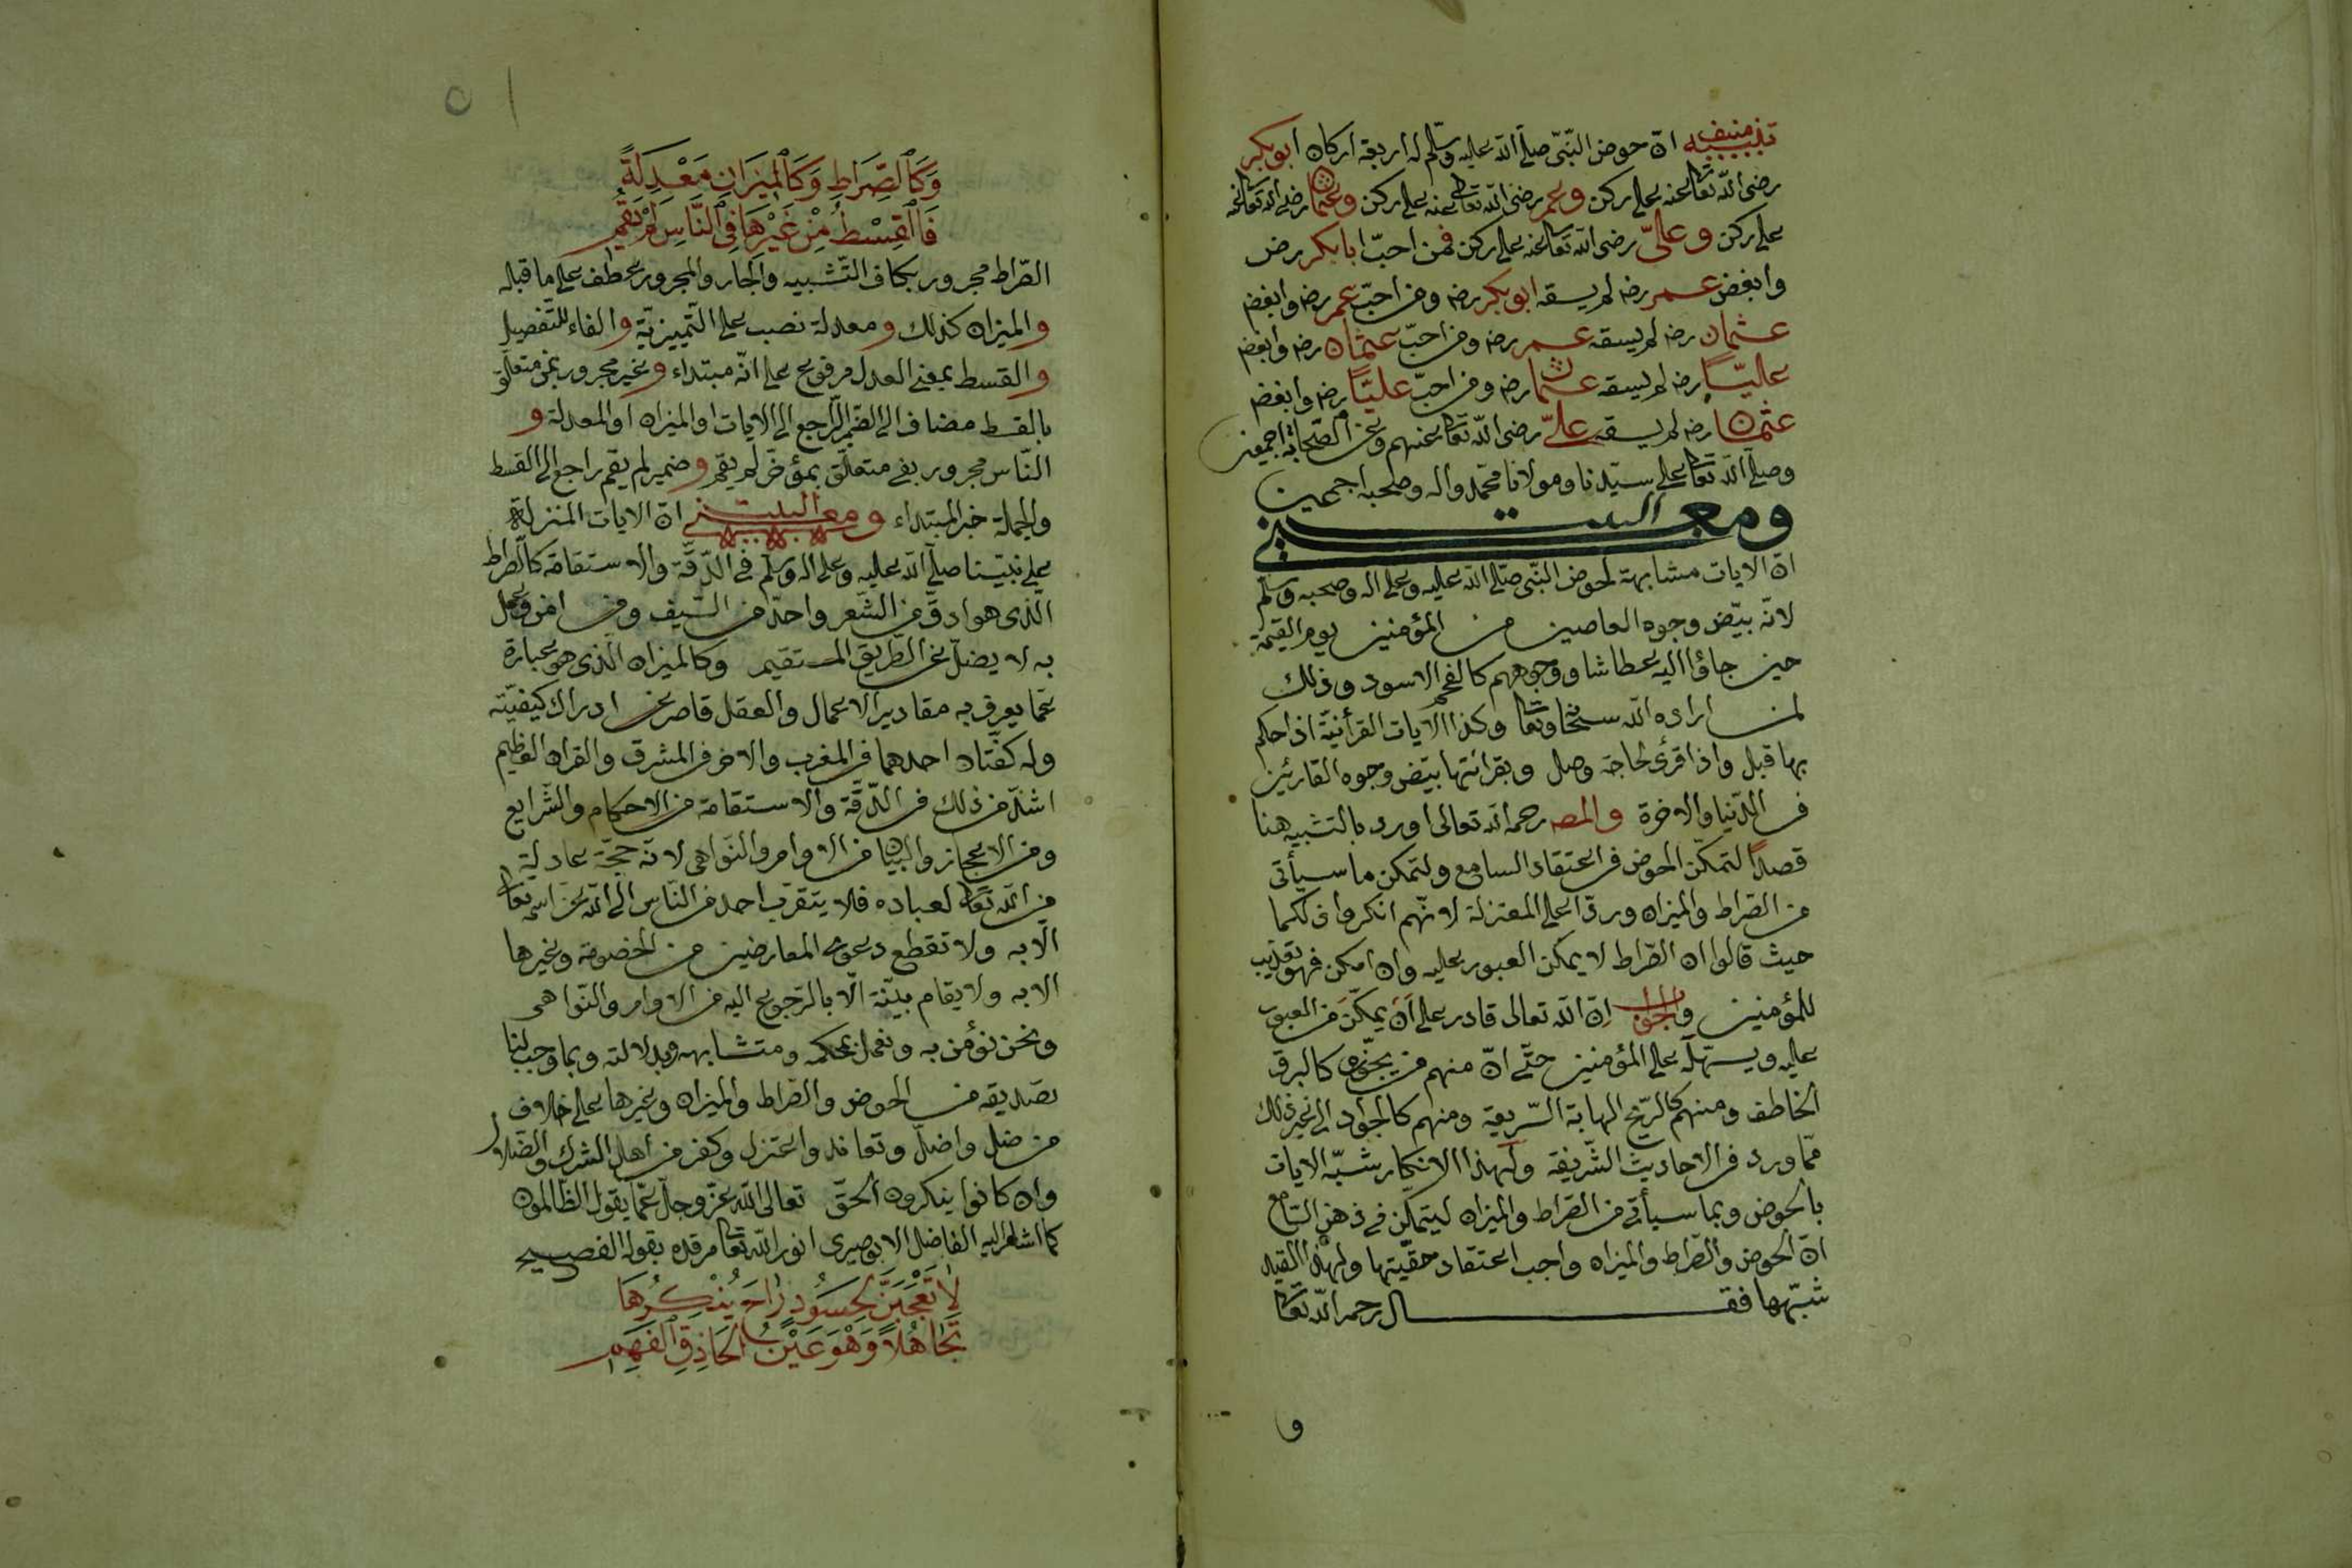 تنبيه منيف انّ حوض النّبّى صلّى اللّه عليه وسلّم له اربعة اركان ابو بكر
رضى اللّه تعا عنه على ركن وعمر رضى اللّه تعا عنه على ركن وعثمان رضى اللّه تعا عنه
على ركن وعلىّ رضى اللّه تعا عنه على ركن فمن احبّ ابا بكر رض
وابغض عمر رضه لم يسقه ابو بكر رضه ومن احبّ عمر رضه وابغض
عثمان رضه لم يسقه عمر رضه ومن احبّ عثمان رضه وابغض
عليّاً رضه لم يسقه عثمان رضه ومن احبّ عليّاً رضه وابغض
عثمان رضه لم يسقه علىّ رضى اللّه تعا عنهم وعن الصّحابة اجمعين
وصلّى اللّه تعا على سيّدنا ومولانا محمّد واله وصحبه اجمعين
ومعنى البيت
انّ الايات مشابهة لحوض النّبى صلّى اللّه عليه وعلى اله وصحبه وسلّم
لانّه بيّض وجوه العاصين من المؤمنين يوم القيمة
حين جاؤا اليه عطاشا ووجوههم كالفحم الاسود وذلك
لمن اراده اللّه سبحا وتعا وكذا الايات القرأنيّة اذا حكم
بها قبل واذا قرئ لحاجة وصل وبقرائتها بيّض وجوه القارئين
فى الدّنيا والاخرة والمصه رحمه اللّه تعالى اورد بالتشبيه هنا
قصداً لتمكّن الحوض فى اعتقاد السامع ولتمكن ما سيأتى
من الصّراط والميزان وردّاً على المعتزلة لانّهم انكروا ذلكما
حيث قالوا ان الصّراط لا يمكن العبور عليه وان امكن فهو تعذيب
للمؤمنين والجواب انّ اللّه تعالى قادر على ان يمكّن من العبور
عليه ويسهّله على المؤمنين حتّى انّ منهم من يجوّزه كالبرق
الخاطف ومنهم كالرّيح الهابة السّريعة ومنهم كالجواد الى غير ذلك
ممّا ورد فى الاحاديث الشّريفة ولهذا الانكار شبّه الايات
بالحوض وبما سيأتى من الصّراط والميزان ليتمكّن فى ذهن السّامع
انّ الحوض والصّراط والميزان واجب اعتقاد حقّيّتها ولهذا القيد
شبّهها فقال رحمه اللّه تعا
و
٥١
وَكَالصِّرَاطِ وَكَالْمِيزَانِ مَعْدِلَةً
فَالْقِسْطُ مِنْ غَيْرِهَا فِى النَّاسِ لَمْ يَقُمِ
الصّراط مجرور بكاف التّشبيه والجار والمجرور عطف على ما قبله
والميزان كذلك ومعدلة نصب على التّمييزيّة والفاء للتّفصيل
والقسط بمعنى العدل مرفوع على انّه مبتداء وغير مجرور بمن متعلّق
بالقسط مضاف الى الضّمير الرّاجع الى الايات او الميزان او المعدلة و
النّاس مجرور بفى متعلّق بمؤخّر لم يقم وضمير لم يقم راجع الى القسط
والجملة خبر المبتداء ومعنى البيت انّ الايات المنزلة
على نبيّنا صلّى اللّه عليه وعلى اله وسلّم فى الدّقّة والاستقامة كالصّراط
الّذى هو ادقّ من الشّعر واحدّ من السّيف ومن امن وعمل
به لا يضلّ عن الطّريق المستقيم وكالميزان الّذى هو عبارة
عمّا يعرف به مقادير الاعمال والعقل قاصر عن ادراك كيفيّته
وله كفّتان احدهما فى المغرب والاخر فى المشرق والقران العظيم
اشدّ من ذلك فى الدّقّة والاستقامة من الاحكام والشّرايع
ومن الاعجاز والبيان من الاوامر والنّواهى لانّه حجّة عادلة
من اللّه تعا لعباده فلا يتقرّب احد من النّاس الى اللّه عزّ اسمه تعا
الّا به ولا تقطع دعوى المعارضين من الخصومة وغيرها
الا به ولا يقام بيّنة الّا بالرّجوع اليه من الاوامر والنّواهى
ونحن نؤمن به ونعمل بمحكمه ومتشابهه وبدلالته وبما وجب لنا
تصديقه من الحوض والصّراط والميزان وغيرها على خلاف
من ضل واضلّ وتعاند واعتزل وكفر من اهل الشرك والضّلال
وان كانوا ينكرون الحقّ تعالى اللّه عزّ وجلّ عمّا يقول الظّالمون
كما اشار اليه الفاضل الابوصيرى نوّر اللّه تعا مرقده بقوله الفصيح
لَا تَعْجَبَنْ لِحَسُودٍ رَاحَ يُنْكِرُهَا
تَجَاهُلاً وَهْوَ عَيْنُ الْحَاذِقِ الْفَهِمِ